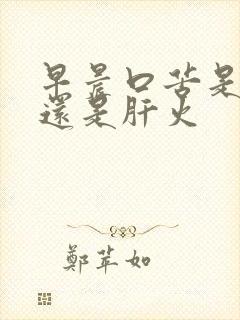 早晨口苦是
還是肝火
鄭苹如